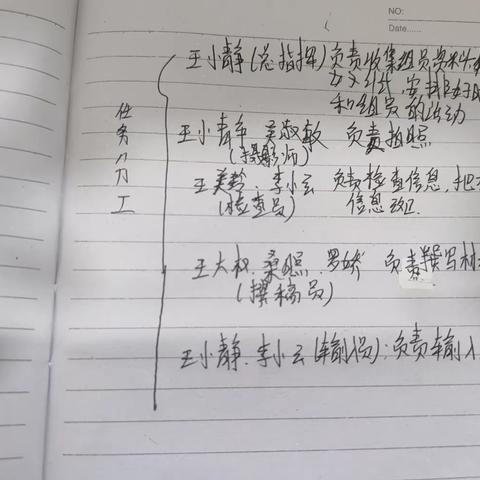 NO:
Date
任务分工
王小静(总指挥)负责收集组员资料
方式,安排
和组员的活动
王小静 吴敬敏 负责拍照
(摄影师)
王美玲、李小云 负责检查信息,把
(检查员) 信息
王大权、桑照、罗娇 负责撰写材
(撰稿员)
王小静、李小云(输入员):负责输入